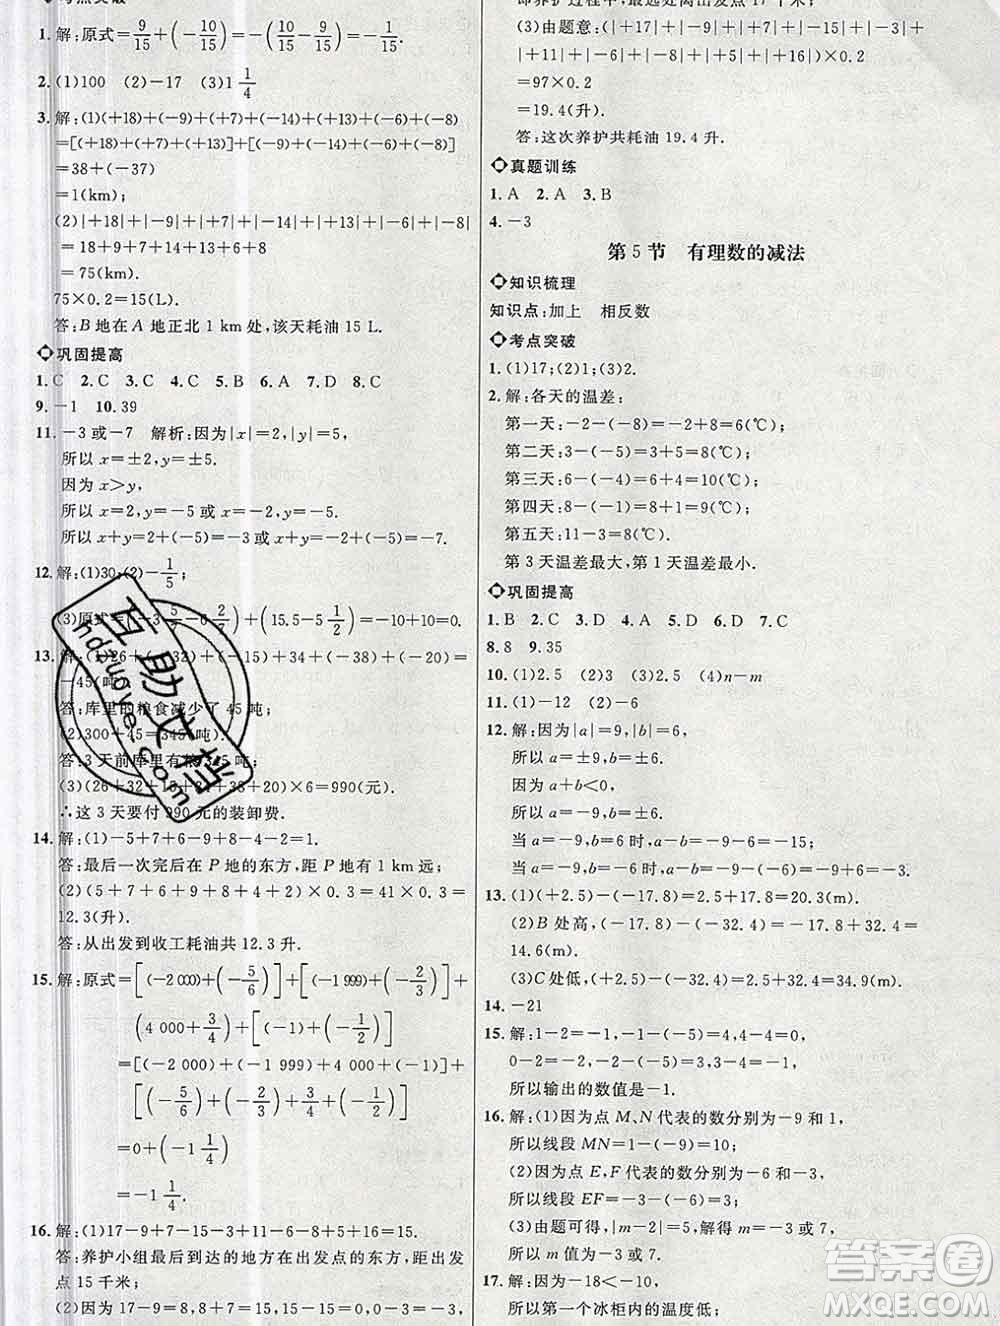 1. 解:原式=9/15+(-10/15)=-(10/15-9/15)=-1/15.
2. (1)100 (2)-17 (3)1 1/4
3. 解:(1)(+18)+(-9)+(+7)+(-14)+(+13)+(-6)+(-8)
=[(+18)+(+7)+(+13)]+[(-9)+(-14)+(-6)+(-8)]
=38+(-37)
=1(km).
(2)|+18|+|-9|+|+7|+|-14|+|+13|+|-6|+|-8|
=18+9+7+14+13+6+8
=75(km).
75×0.2=15(L).
答:B地在A地正北1 km处,该天耗油15 L.
巩固提高
1. C 2. C 3. C 4. C 5. B 6. A 7. D 8. C
9. -1 10. 39
11. -3或-7 解析:因为|x|=2,|y|=5,
所以x=±2,y=±5.
因为x>y,
所以x=2,y=-5或x=-2,y=-5.
所以x+y=2+(-5)=-3或x+y=-2+(-5)=-7.
12. 解:(1)30;(2)-1/5;
(3)原式=(-3 5/7-6 2/7)+(15.5-5 1/2)=-10+10=0.
13. 解:(1)26+(-32)+(-15)+34+(-38)+(-20)=
-45(吨).
答:库里的粮食减少了45吨;
(2)300+45=345(吨).
答:3天前库里有粮345吨;
(3)(26+32+15+34+38+20)×6=990(元).
∴这3天要付990元的装卸费.
14. 解:(1)-5+7+6-9+8-4-2=1.
答:最后一次完后在P地的东方,距P地有1 km远;
(2)(5+7+6+9+8+4+2)×0.3=41×0.3=
12.3(升).
答:从出发到收工耗油共12.3升.
15. 解:原式=[(-2 000)+(-5/6)]+[(-1 999)+(-2/3)]+
(4 000+3/4)+[(-1)+(-1/2)]
=[(-2 000)+(-1 999)+4 000+(-1)]+
[(-5/6)+(-2/3)+3/4+(-1/2)]
=0+(-1 1/4)
=-1 1/4.
16. 解:(1)17-9+7-15-3+11-6-8+5+16=15.
答:养护小组最后到达的地方在出发点的东方,距出发
点15千米;
(2)因为17-9=8,8+7=15,15-15=0,0-3=-3,
即养护过程中,最远处离出发点17千米;
(3)由题意:(|+17|+|-9|+|+7|+|-15|+|-3|+
|+11|+|-6|+|-8|+|+5|+|+16|)×0.2
=97×0.2
=19.4(升).
答:这次养护共耗油19.4升.
真题训练
1. A 2. A 3. B
4. -3
第5节 有理数的减法
知识梳理
知识点:加上 相反数
考点突破
1. (1)17;(2)1;(3)2.
2. 解:各天的温差:
第一天:-2-(-8)=-2+8=6(℃);
第二天:3-(-5)=3+5=8(℃);
第三天:6-(-4)=6+4=10(℃);
第四天:8-(-1)=8+1=9(℃);
第五天:11-3=8(℃);
第3天温差最大,第1天温差最小.
巩固提高
1. B 2. C 3. D 4. A 5. D 6. D 7. C
8. 8 9. 35
10. (1)2.5 (2)3 (3)2.5 (4)n-m
11. (1)-12 (2)-6
12. 解:因为|a|=9,|b|=6,
所以a=±9,b=±6.
因为a+b<0,
所以a=-9,b=±6.
当a=-9,b=6时,a-b=-9-6=-15,
当a=-9,b=-6时,a-b=-9-(-6)=-3.
13. (1)(+2.5)-(-17.8)=2.5+17.8=20.3(m).
(2)B处高,(-17.8)-(-32.4)=-17.8+32.4=
14.6(m).
(3)C处低,(+2.5)-(-32.4)=2.5+32.4=34.9(m).
14. -21
15. 解:1-2=-1,-1-(-5)=4,4-4=0,
0-2=-2,-2-(-5)=3,3-4=-1,
所以输出的数值是-1.
16. 解:(1)因为点M、N代表的数分别为-9和1,
所以线段MN=1-(-9)=10;
(2)因为点E,F代表的数分别为-6和-3,
所以线段EF=-3-(-6)=3;
(3)由题可得,|m-2|=5,解得m=-3或7,
所以m值为-3或7.
17. 解:因为-18<-10,
所以第一个冰柜内的温度低;
互助文档
hdzuoye.com
答案圈
MXQE.COM